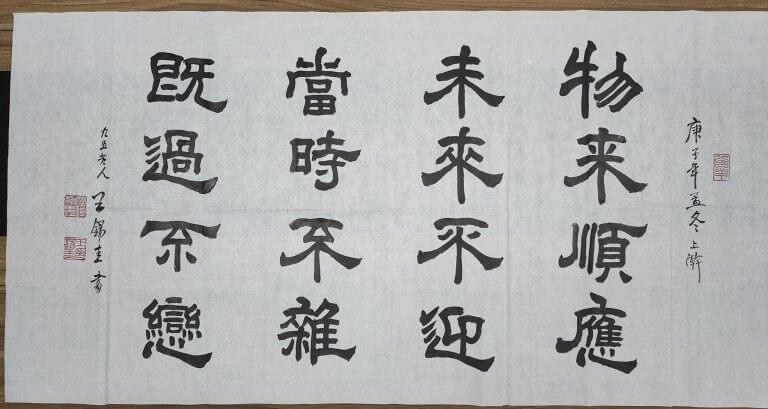 庚子年孟冬上澣
物来順應
未來不迎
當時不雜
既過不戀
九五老人
王 圭書